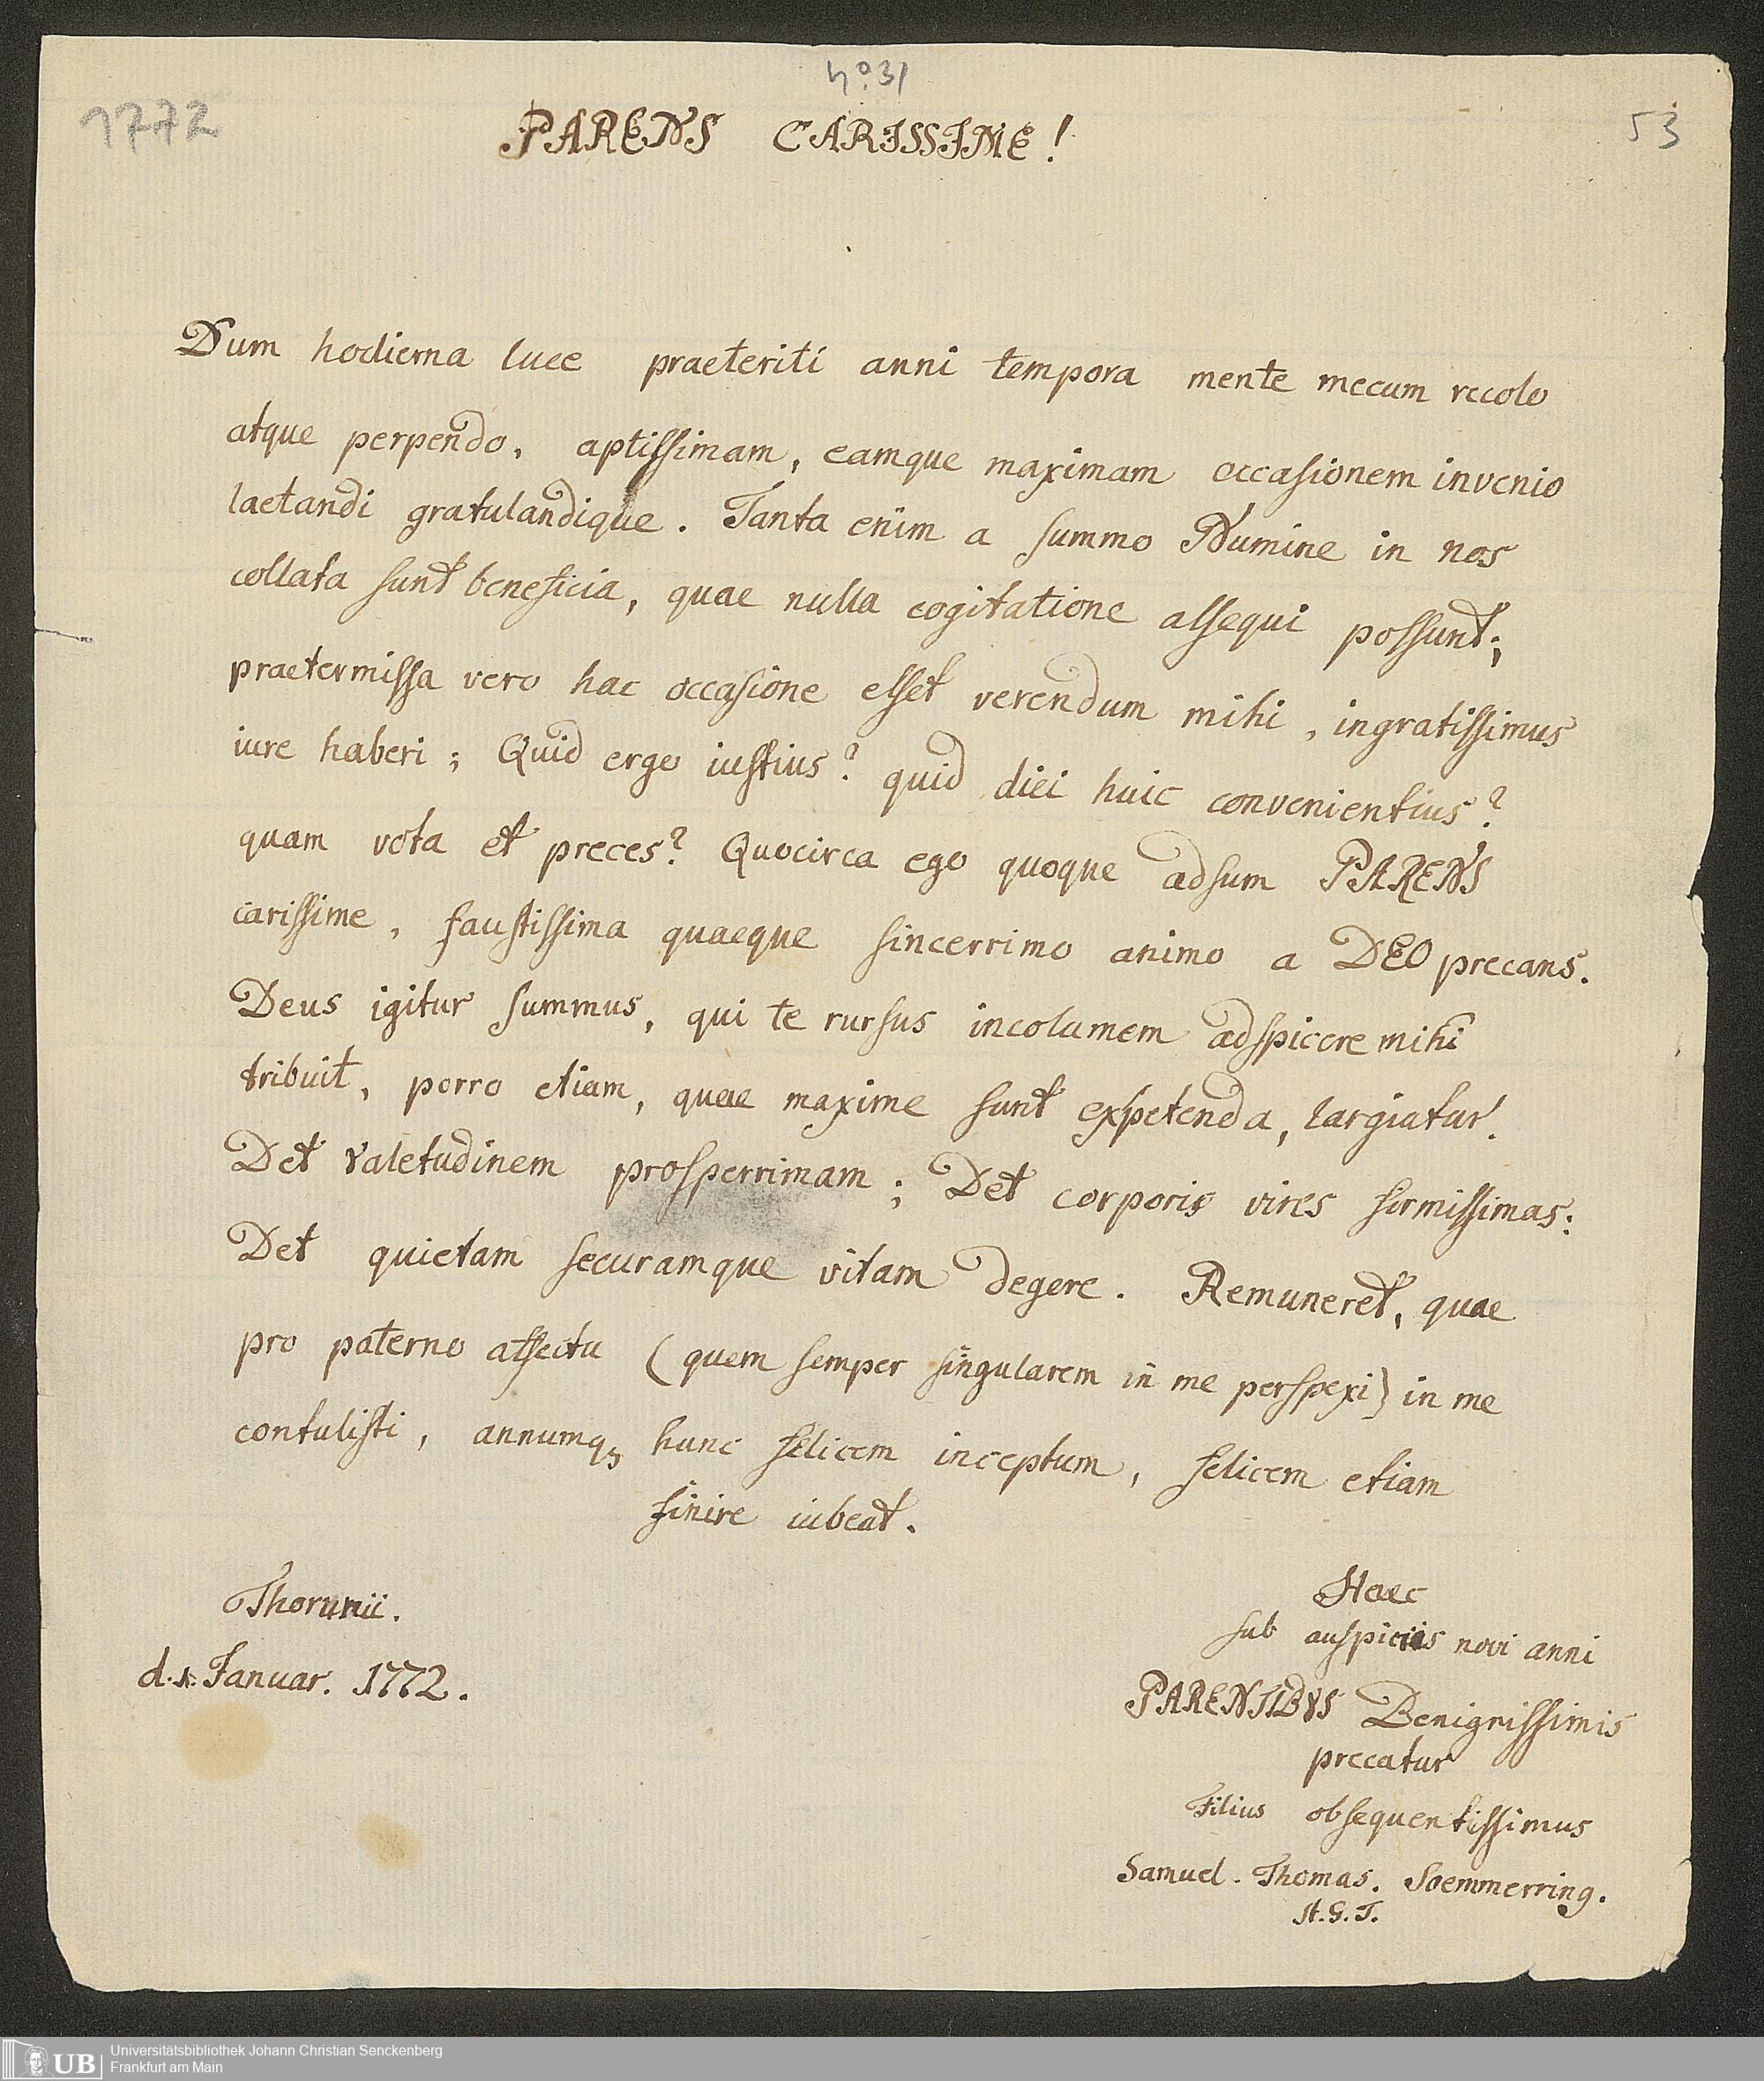 nº. 31
1772
53
PARENS CARISSIME!
Dum hodierna luce praeteriti anni tempora mente mecum recolo
atque perpendo, aptissimam, eamque maximam occasionem invenio
laetandi gratulandique. Tanta enim a summo Numine in nos
collata sunt beneficia, quae nulla cogitatione assequi possunt;
praetermissa vero hac occasione esset verendum mihi, ingratissimus
iure haberi; Quid ergo iustius? quid diei huic convenientius?
quam vota et preces? Quocirca ego quoque adsum PARENS
carissime, faustissima quaeque sincerrimo animo a DEO precans.
Deus igitur summus, qui te rursus incolumem adspicere mihi
tribuit, porro etiam, quae maxime sunt expetenda, largiatur.
Det valetudinem prosperrimam; Det corporis vires firmissimas:
Det quietam securamque vitam degere. Remuneret, quae
pro paterno affectu (quem semper singularem in me perspexi) in me
contulisti, annumq; hunc felicem inceptum, felicem etiam
finire iubeat.
Thorunii.
d. 1. Ianuar. 1772.
Haec
sub auspiciis novi anni
PARENTIBVS Benignissimis
precatur
Filius obsequentissimus
Samuel. Thomas. Soemmerring.
A. G. T.
Universitätsbibliothek Johann Christian Senckenberg
UB Frankfurt am Main